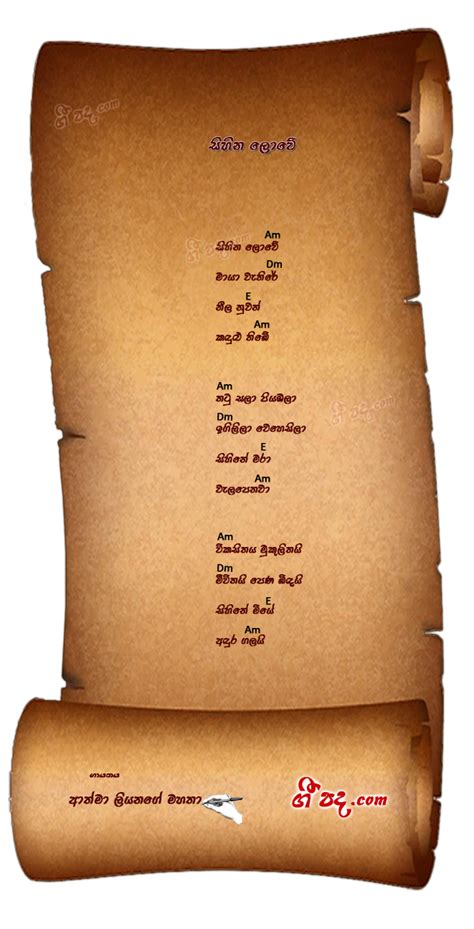 ගී පද.com
සිහින ලොවේ
Am
සිහින ලොවේ
Dm
මායා වැතිරේ
E
නීල නුවන්
Am
කඳුළු තිබේ
Am
තටු සලා පියඹලා
ගී පද.com
Dm
ඉගිලිලා වෙහෙසිලා
E
සිහිනේ මරා
Am
වැලපෙනවා
Am
විකසිතය මුකුලිතයි
Dm
මීවිතයි පෙණ බිඳයි
E
සිහිනේ මියේ
Am
අඳුර ගලයි
ගායනය
ආත්මා ලියනගේ මහතා
ගී පද.com